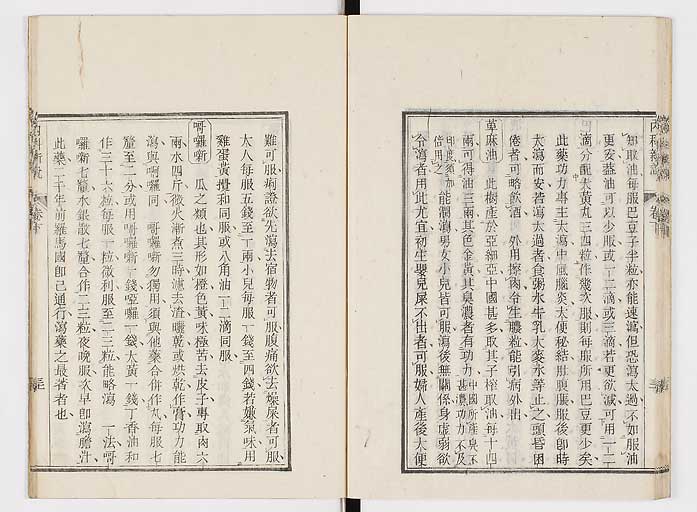 如取油每服巴豆子半粒亦能速瀉但恐瀉太過不如服油
更安益油可以少服或一二滴或三滴若更欲減可用一二
滴分配大黃丸三四粒作幾次服則每服所用巴豆更少矣
此藥功力專主大瀉中風腦炎大便秘結肚腹脹服後卽時
大瀉而安若瀉太過者食粥水牛乳大麥水等止之頭昏困
倦者可略飲酒 外用擦肉令生膿粒能引病外出
萆麻油 此樹產於亞細亞中國甚多取其子榨取油每十四
兩可得油三兩其色金黃其臭濃者有功力中國所產臭不甚濃功力不及
印度須加倍用之能潤瀉男女小兒皆可服瀉後無關係身虛弱欲
令瀉者用此尤宜初生嬰兒屎不出者可服婦人產後大便
難可服痢證欲先瀉去宿物者可服腹痛欲去燥屎者可服
大人每服五錢至一兩小兒每服一錢至四錢若嫌氣味用
雞蛋黃攪和同服或八角油一二滴同服
哥囉噺 瓜之類也其形如橙色黃味極苦去皮子專取肉六
兩水四斤微火漸煮三時濾去渣曬乾或烘乾作膏功力能
瀉與啊囉同 哥囉噺勿獨用須與他藥合倂作丸每服七
釐至二分或用哥囉噺一錢啞囉一錢大黃一錢丁香油和
作三十六粒每服一粒微利服至二三粒能略瀉 一法哥
囉噺七釐水銀散七釐合作二三粒夜晚服次早卽瀉膽汁
此藥二千年前羅馬國卽已通行瀉藥之最著者也
內科新說
卷下
三